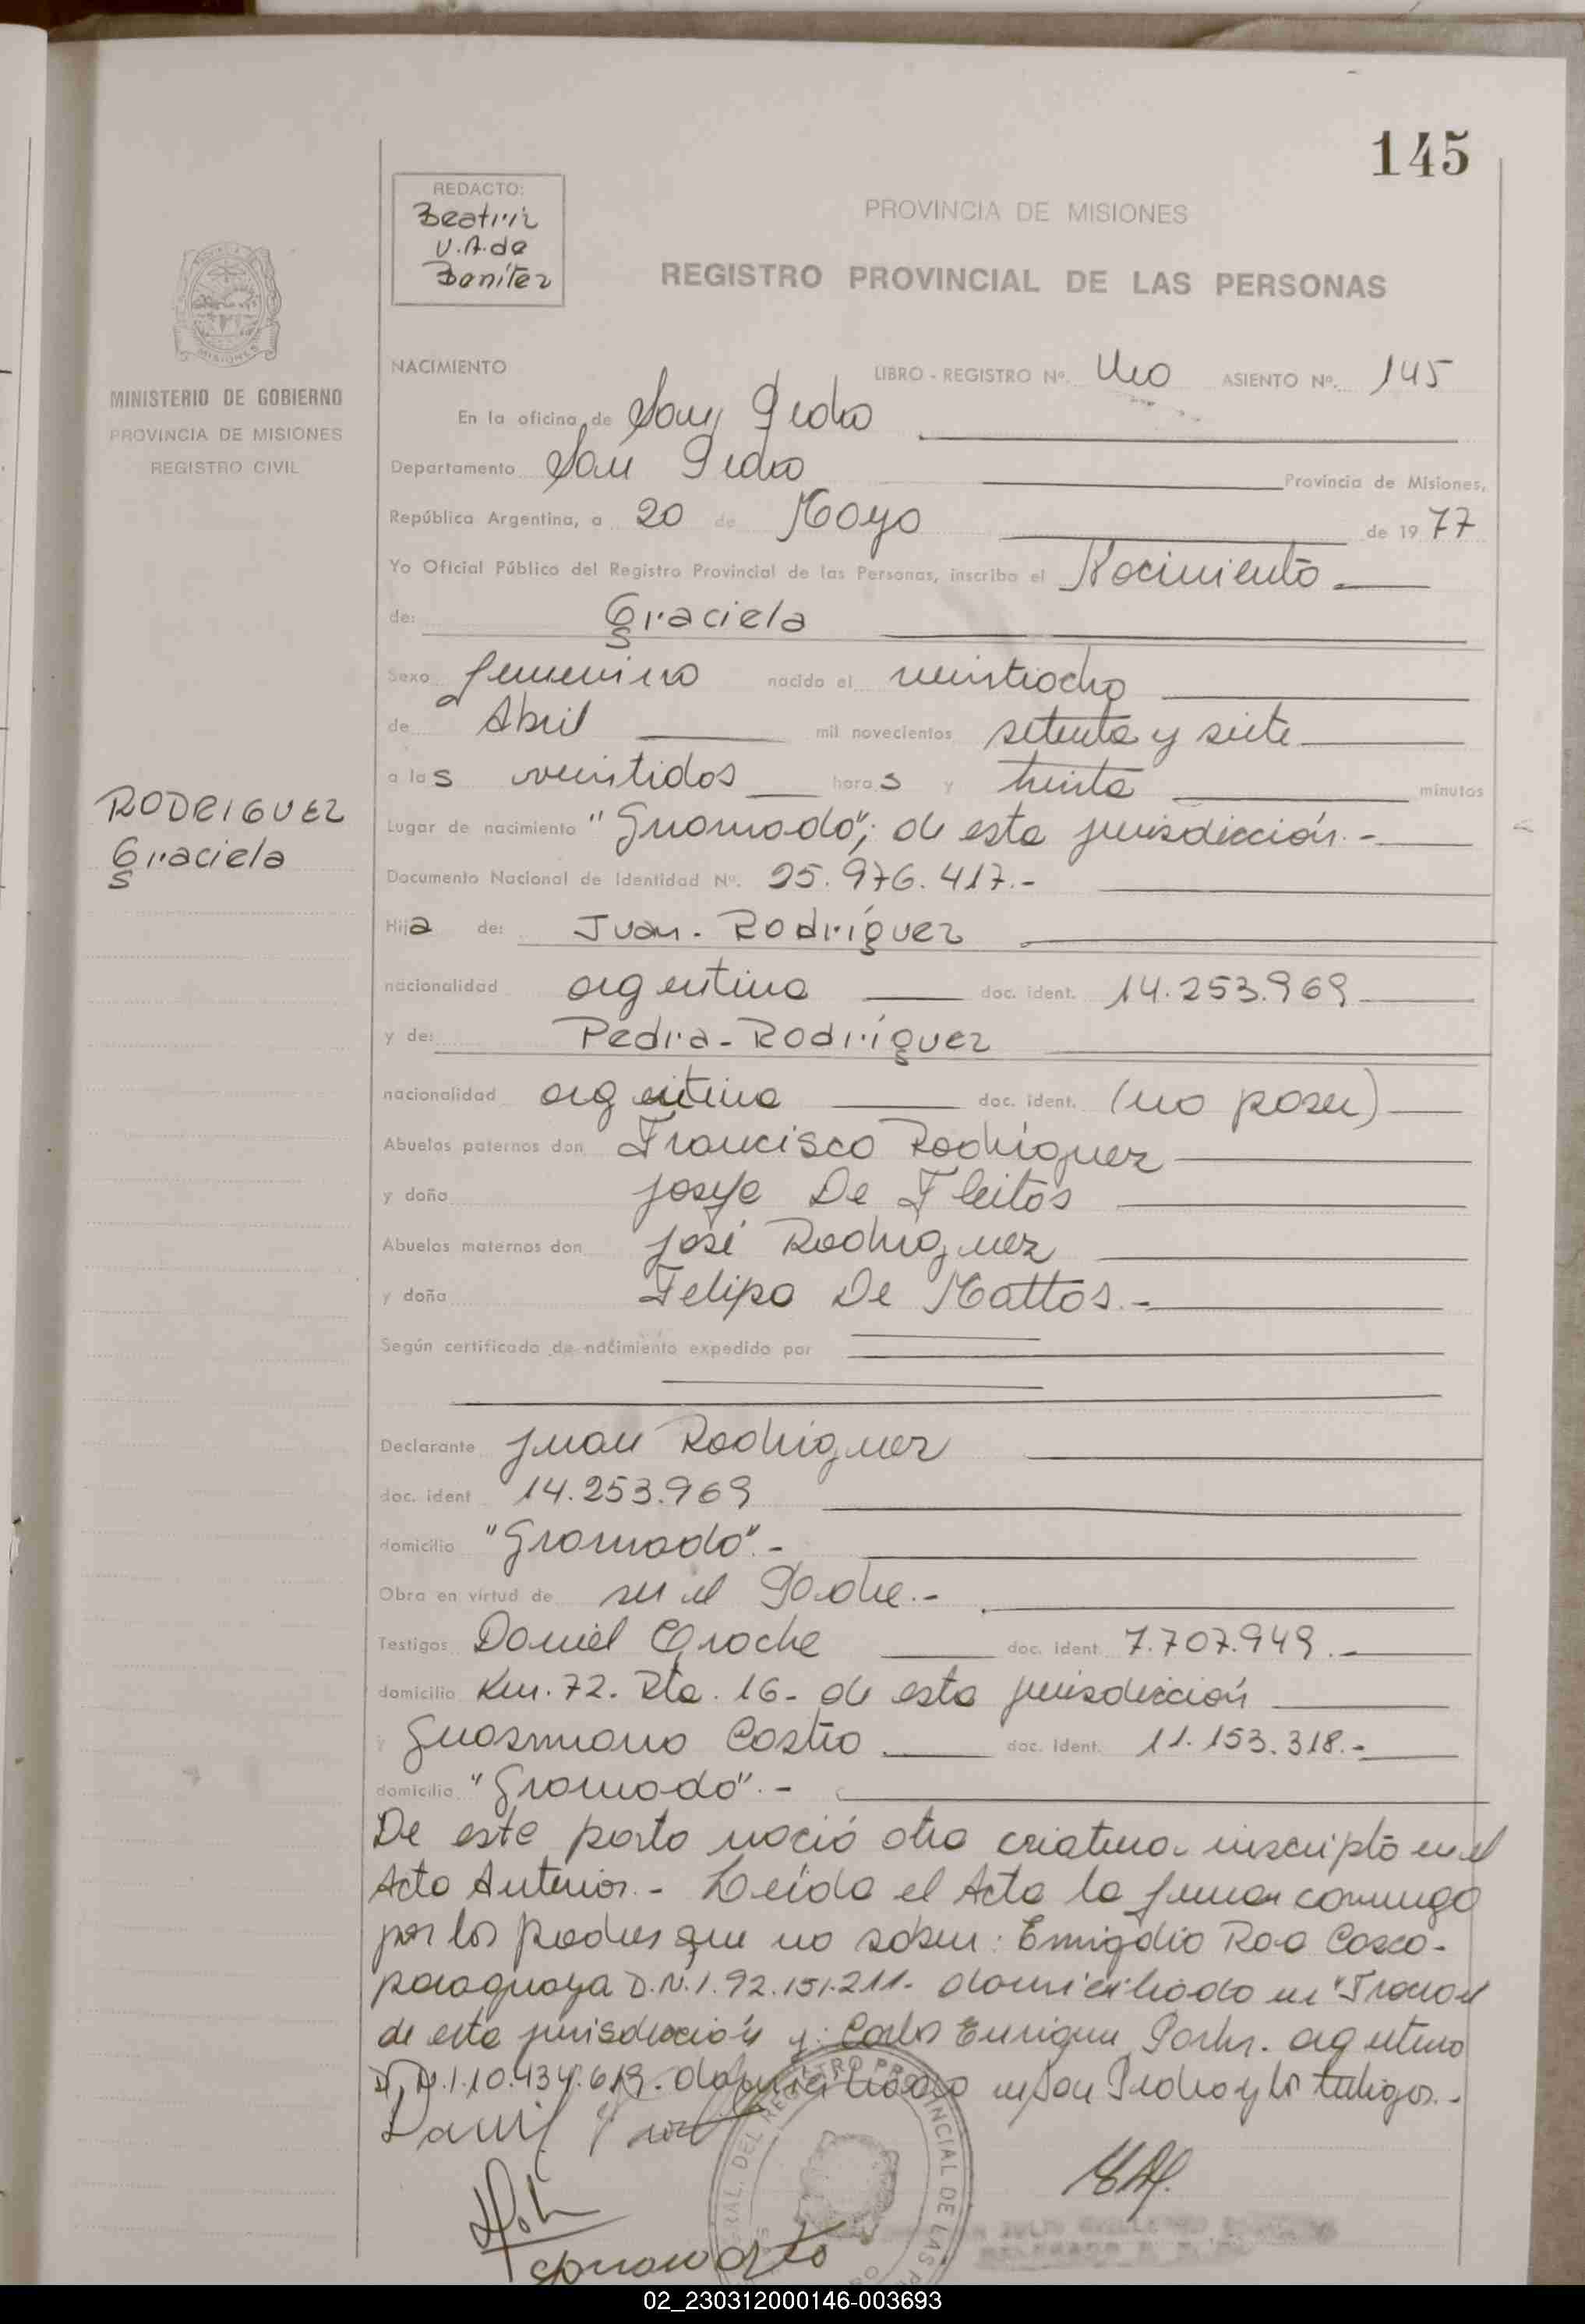 145
REDACTO:
Beatriz
V.A. de
Benítez
PROVINCIA DE MISIONES
REGISTRO PROVINCIAL DE LAS PERSONAS
MINISTERIO DE GOBIERNO
PROVINCIA DE MISIONES
REGISTRO CIVIL
NACIMIENTO LIBRO - REGISTRO Nº. Uno ASIENTO Nº. 145
En la oficina de San Pedro
Departamento San Pedro Provincia de Misiones,
República Argentina, a 20 de Mayo de 1977
Yo Oficial Público del Registro Provincial de las Personas, inscribo el Nacimiento.
de: Graciela
Sexo femenino nacido el veintiocho
de Abril mil novecientos setenta y siete
a las veintidos horas y treinta minutos
RODRIGUEZ
Graciela
Lugar de nacimiento "Gramado", de esta jurisdicción.-
Documento Nacional de Identidad Nº. 25.976.417.-
Hija de: Juan. Rodríguez
nacionalidad argentina doc. ident. 14.253.969
y de: Pedra - Rodríguez
nacionalidad argentina doc. ident. (no posee)
Abuelos paternos don Francisco Rodríguez
y doña Josefa De Fleitas
Abuelos maternos don José Rodríguez
y doña Felipa De Mattos.-
Según certificado de nacimiento expedido por
Declarante Juan Rodriguez
doc. ident 14.253.969
domicilio "Gramado".-
Obra en virtud de ser el Padre.-
Testigos Daniel doc. ident. 7.707.949.-
domicilio Km. 72. Rta. 16- de esta jurisdicción
y Castro doc. ident. 11.153.318.-
domicilio "Gramado".-
De este parto nació otra criatura inscripta en el
Acta Anterior.- Leída el Acta la firman conmigo
por los padres que no saben: Emigdio Roa
paraguaya D.N.I. 92.151.211- domiciliado en
de esta jurisdicción y: Carlos Enrique argentino
D.N.I. 10.434.619. domiciliado en San Pedro y los testigos.-
02_230312000146-003693